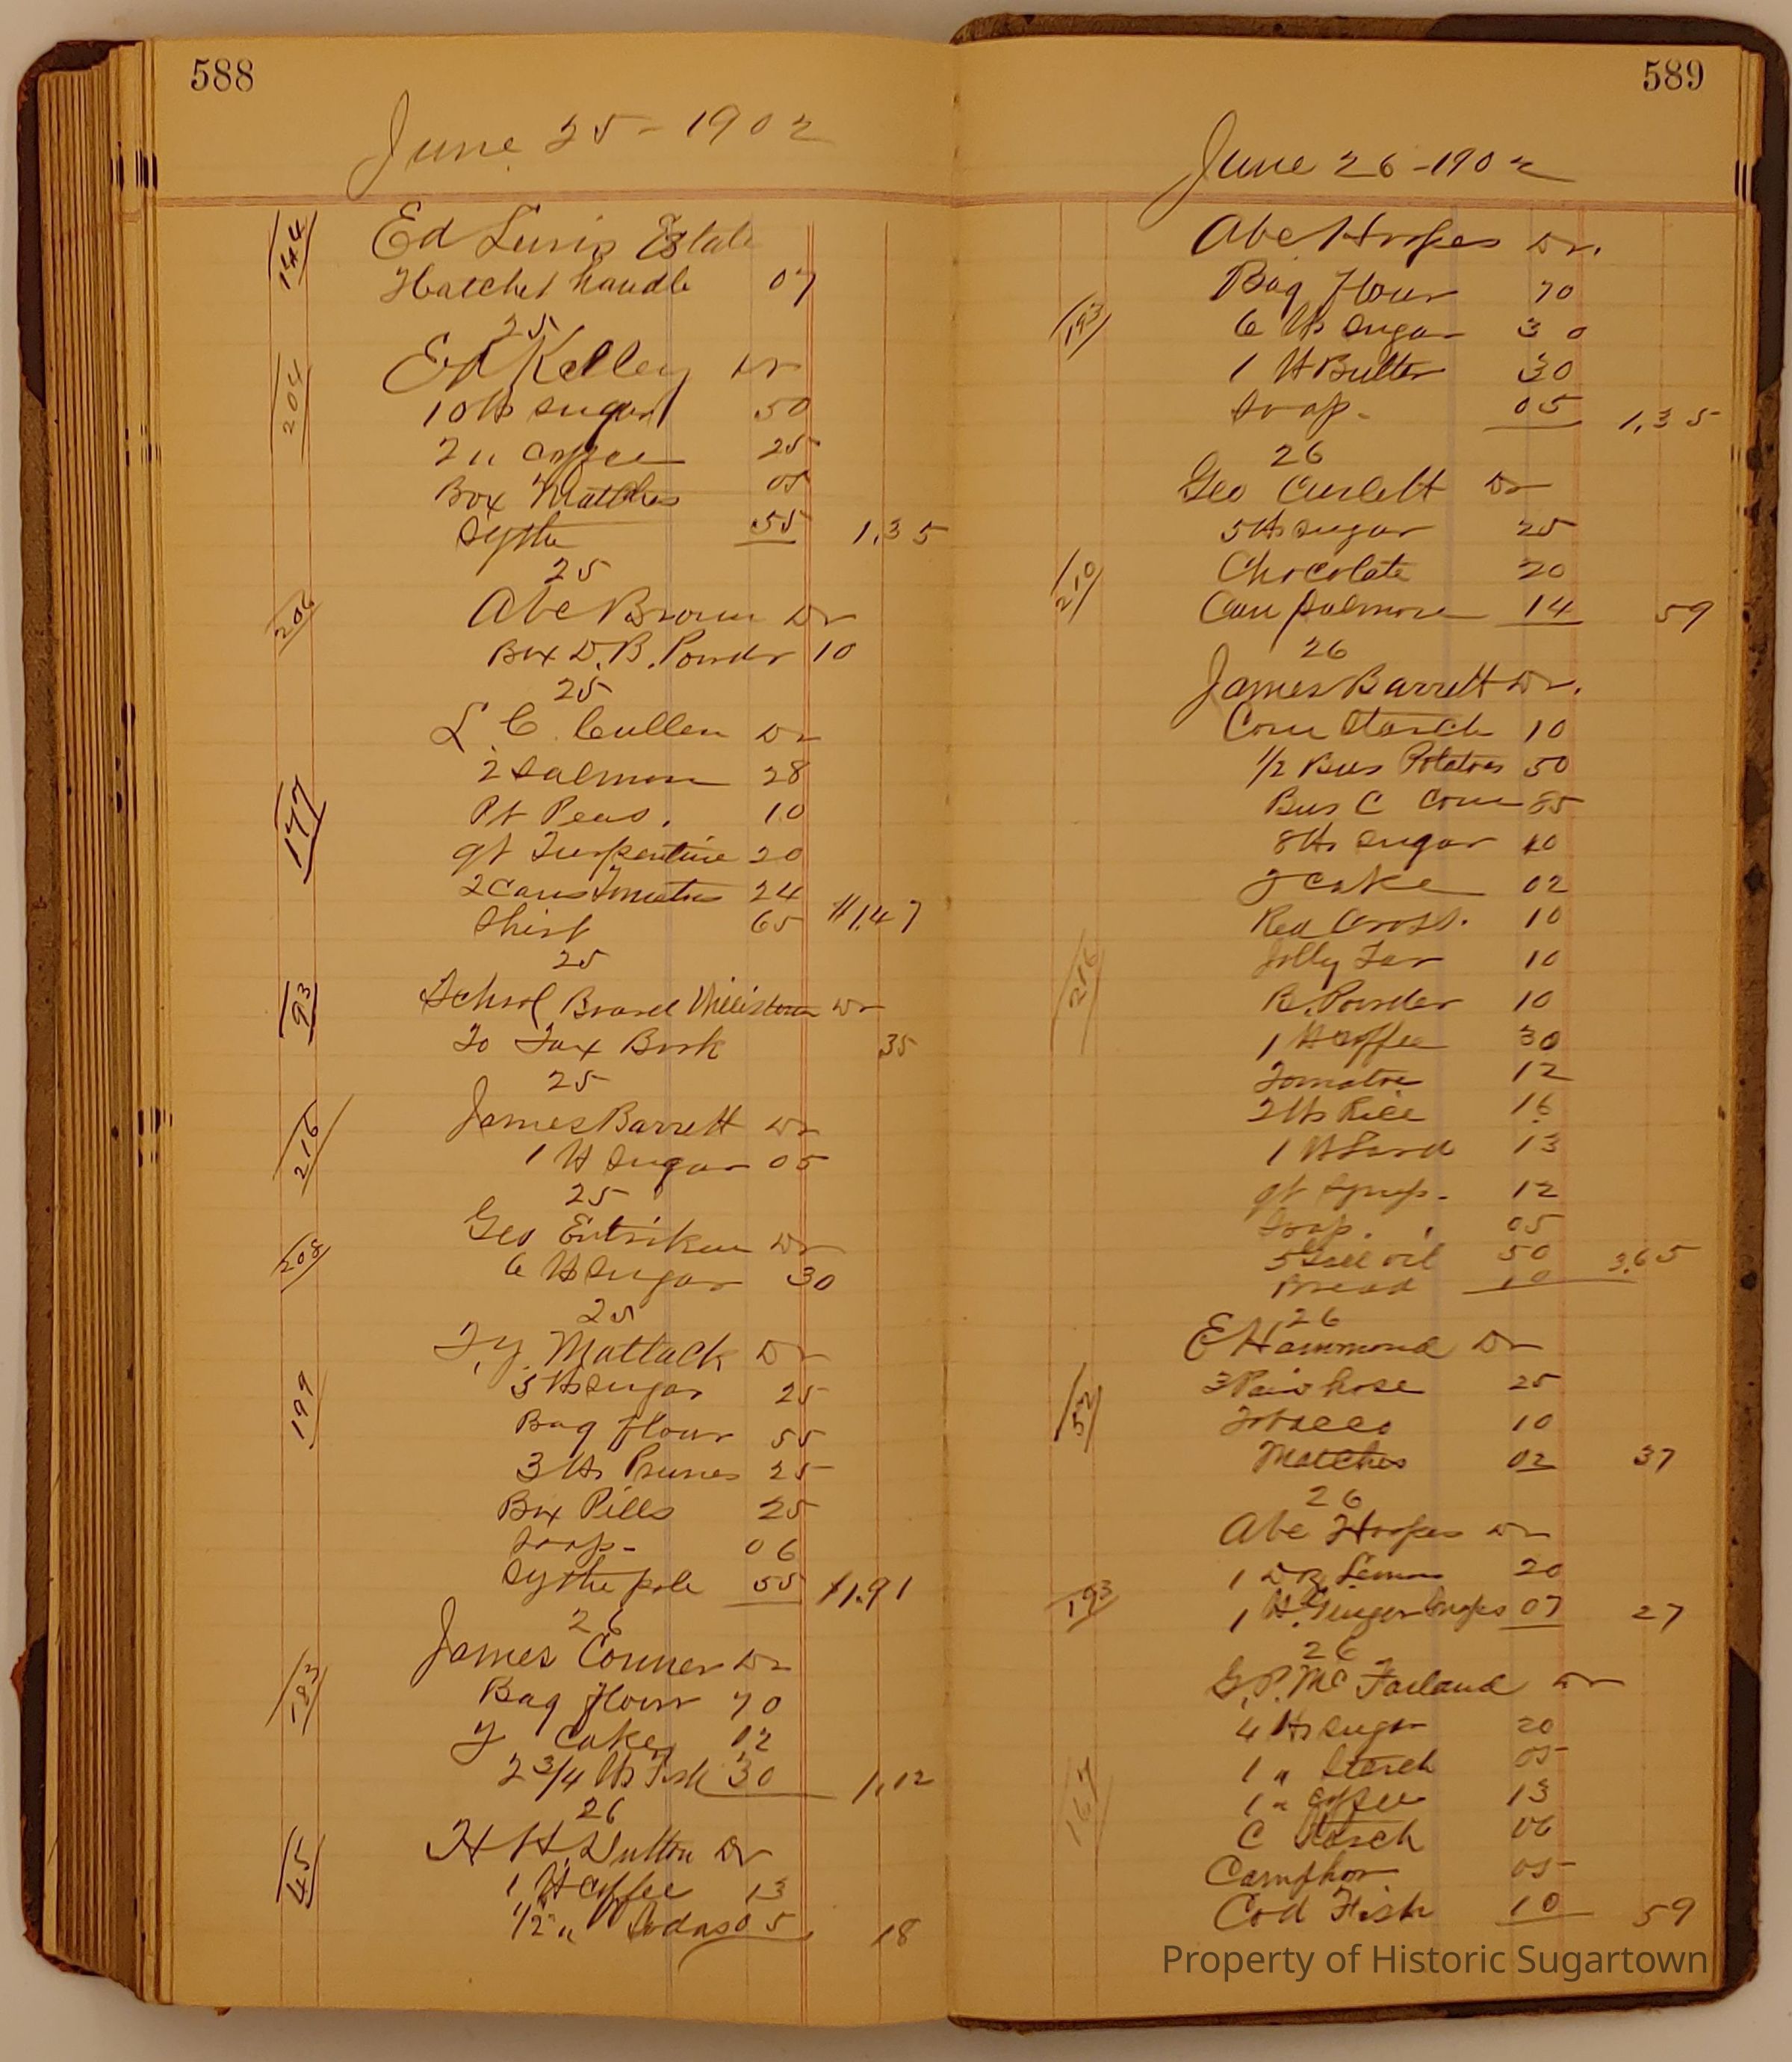 588
June 25 - 1902
144
Ed Lewis Estate
Hatchet handle 07
25
204
Ed Kelley Dr
10 lb sugar 50
2 " Coffee 25
Box Matches 05
Sythe 55 1,35
25
206
Abe Brown Dr
Box D. B. Powder 10
25
L C. Cullen Dr
2 Salmon 28
177
Pt Peas. 10
qt Turpentine 20
2 Cans Tomatoes 24
Shirt 65 $1.47
25
93
School Board Willistown Dr
To Tax Book 35
25
216
James Barrett Dr
1 lb Sugar 05
25
208
Geo Entriken Dr
6 lb Sugar 30
25
T. Y. Mattack Dr
5 lb Sugar 25
199
Bag flour 55
3 lb Prunes 25
Box Pills 25
Soap - 06
Sythe pole 55 $1.91
26
183
James Conner Dr
Bag flour 70
Y Cake 12
2 3/4 lb Fish 30 1,12
26
45
H H. Dutton Dr
1 lb Coffee 13
1/2 " Sodas 05 18
589
June 26 - 1902
Abe Hoopes Dr.
Bag Flour 70
193
6 lb Sugar 30
1 lb Butter 30
Soap - 05 1,35
26
Geo Curlett Dr
5 lb Sugar 25
210
Chocolate 20
Can Salmon 14 59
26
James Barrett Dr.
Corn Starch 10
1/2 Bus Potatoes 50
Bus C Corn 85
8 lb Sugar 40
Y Cake 02
Red Cross. 10
216
Jolly Tar 10
B. Powder 10
1 lb Coffee 30
Tomatoe 12
2 lb Rice 16
1 lb Lard 13
qt Syrup - 12
Soap. 05
5 Gall oil 50 3.65
Bread 10
26
E Hammond Dr
52
3 Pair hose 25
Tobacco 10
Matches 02 37
26
Abe Hoopes Dr
193
1 Dz Lemons 20
1 lb. Ginger Snaps 07 27
26
G. P. McFarland Dr
4 lb Sugar 20
167
1 " Starch 05
1 " Coffee 13
C Starch 06
Camphor 05
Cod Fish 10 59
Property of Historic Sugartown